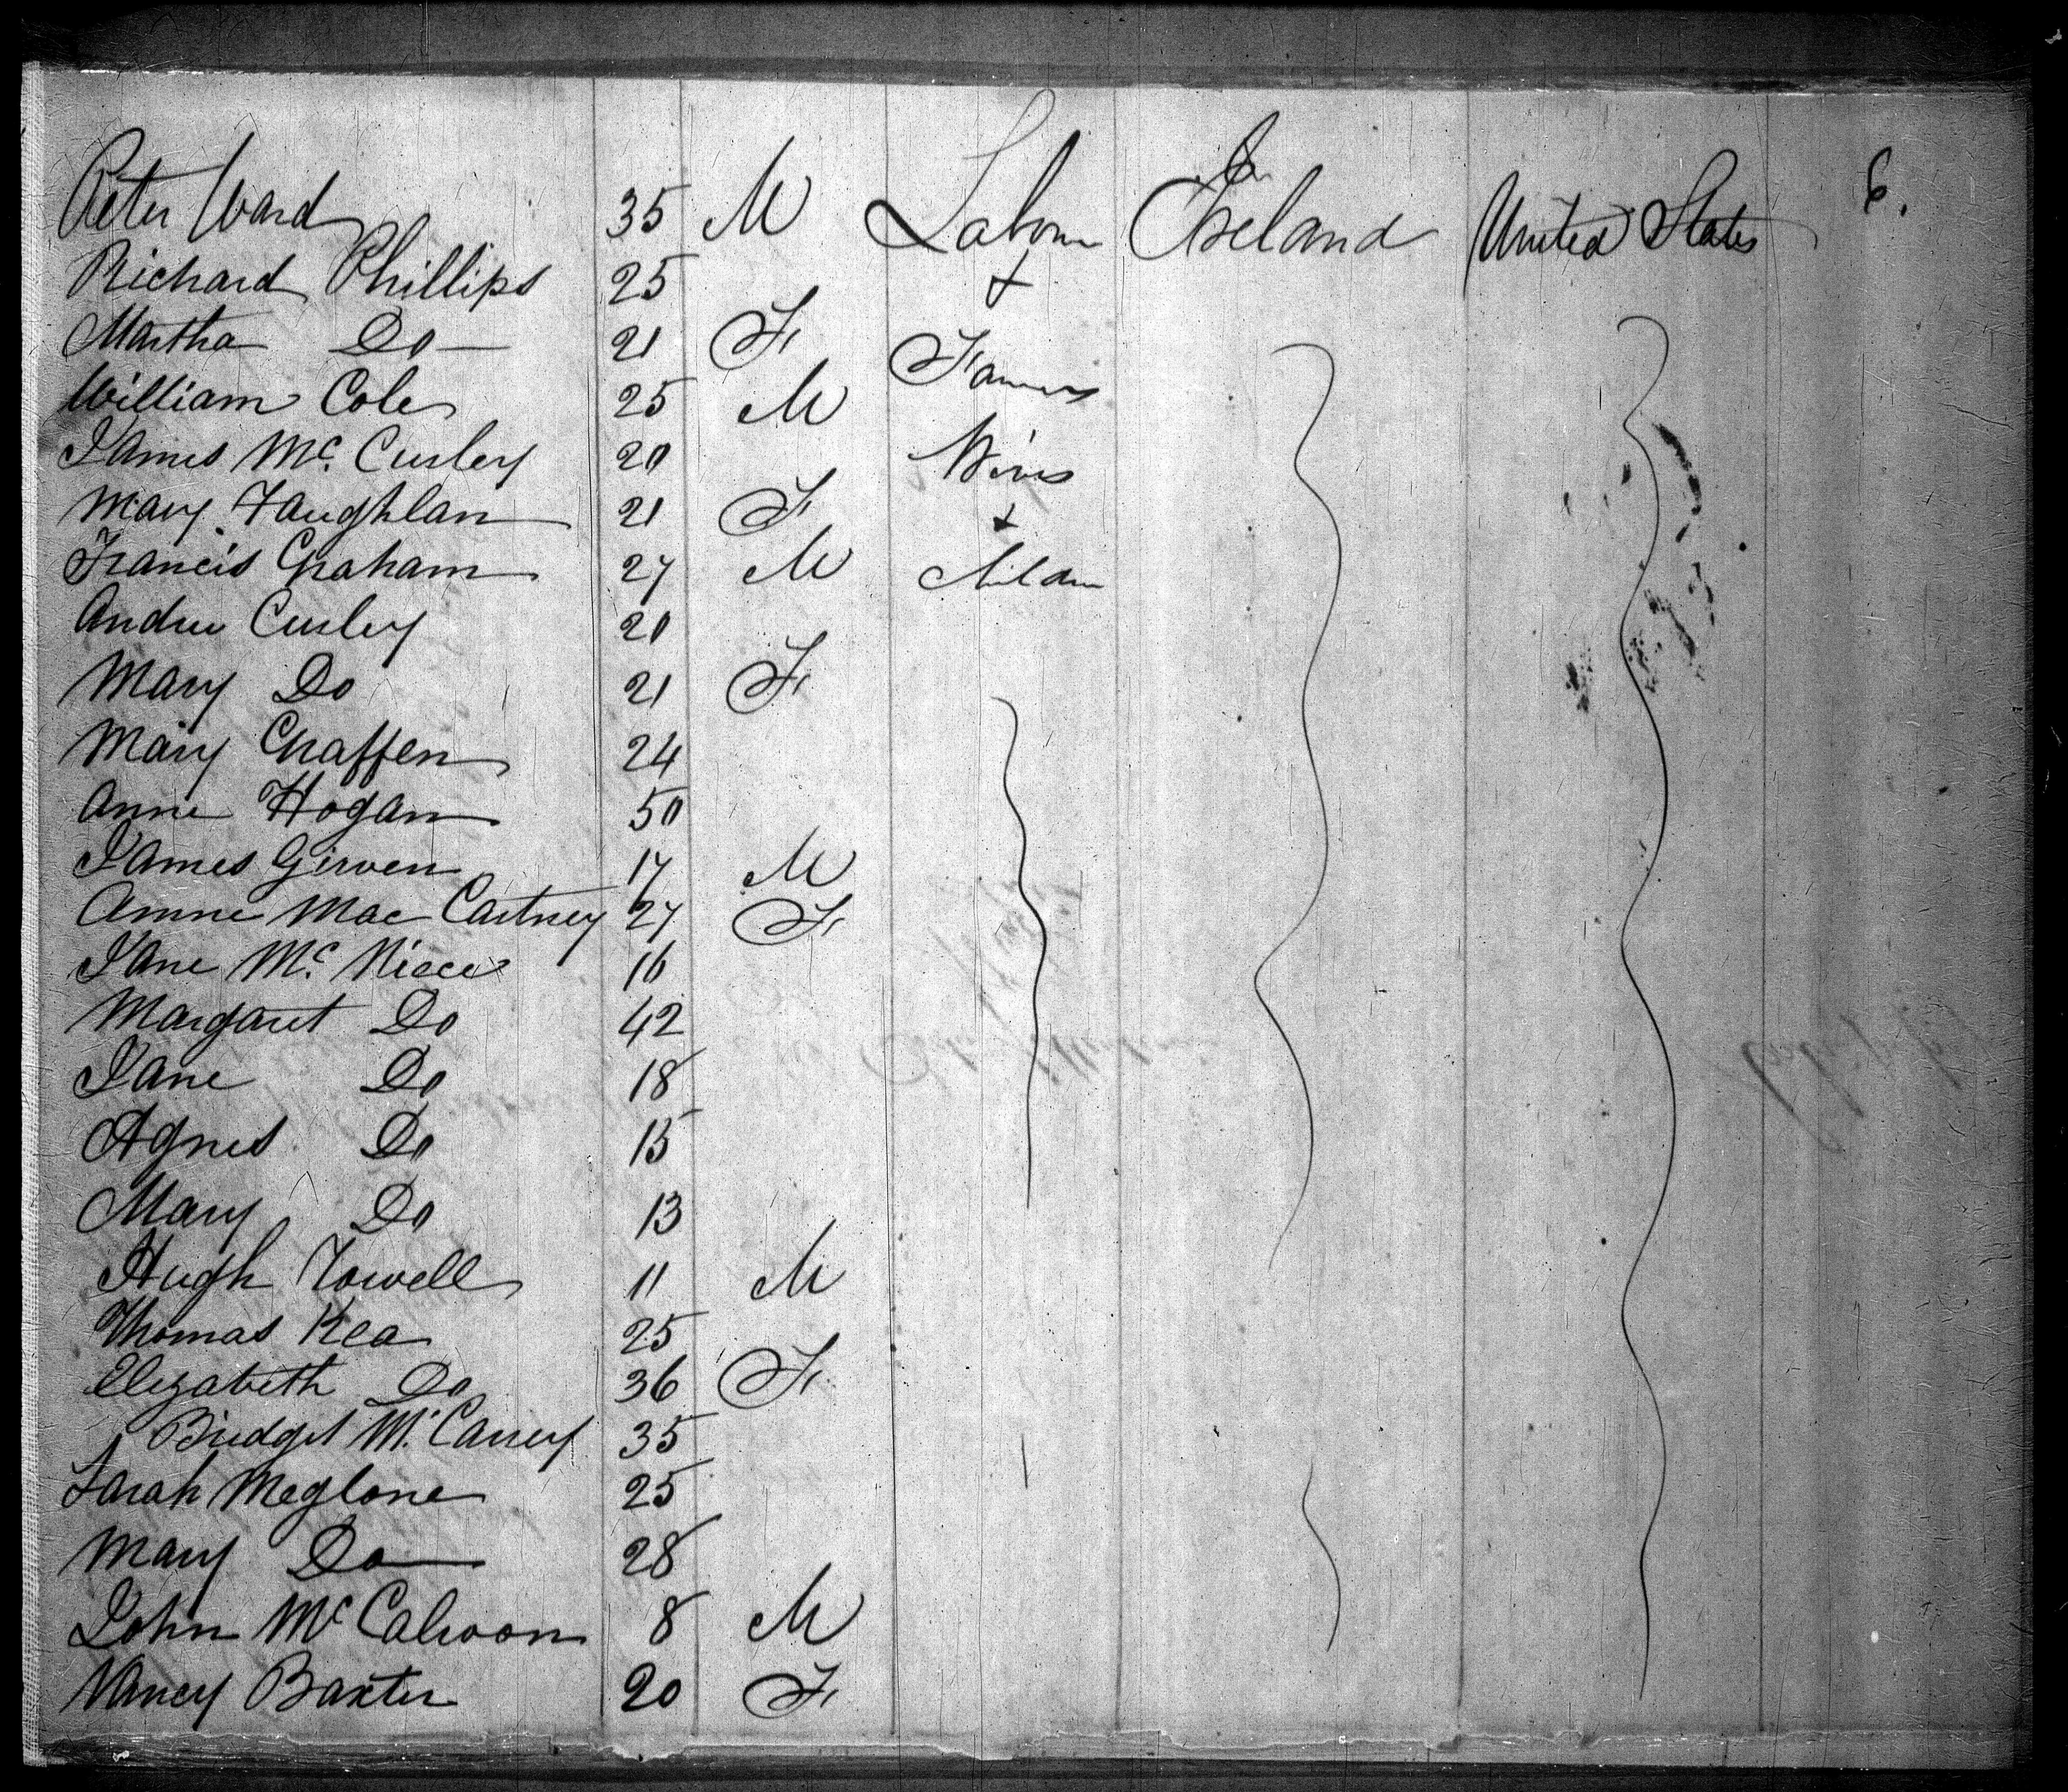 6.
Peter Ward 35 M Labour Ireland United States
Richard Phillips 25 +
Martha Do 21 F. Farmers
William Cole 25 M
James Mc. Curley 20 Wives
Mary Faughlan 21 F. +
Francis Graham 27 M Children
Andrew Curley 20
Mary Do 21 F.
Mary Chaffen 24
Anne Hogan 50
James Girven 17 M
Amne Mac Cartney 27 F.
Jane Mc. Niece 16
Margaret Do 42
Jane Do 18
Agnes Do 15
Mary Do 13
Hugh Towell 11 M
Thomas Kea 25
Elizabeth Do 36 F.
Bridget Mc. Carrey 35
Sarah Meglone 25
Mary Do 28
John Mc Calvoon 8 M
Nancy Baxter 20 F.